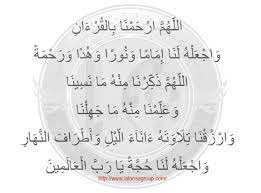 اَللّٰهُمَّ ارْحَمْنَا بِالْقُرْءَانِ
وَاجْعَلْهُ لَنَا إِمَامًا وَنُورًا وَهُدًا وَرَحْمَةً
اَللّٰهُمَّ ذَكِّرْنَا مِنْهُ مَا نَسِينَا
وَعَلِّمْنَا مِنْهُ مَا جَهِلْنَا
وَارْزُقْنَا تِلَاوَتَهُ ءَانَاءَ الَّيْلِ وَأَطْرَافَ النَّهَارِ
وَاجْعَلْهُ لَنَا حُجَّةً يَا رَبَّ الْعَالَمِينَ